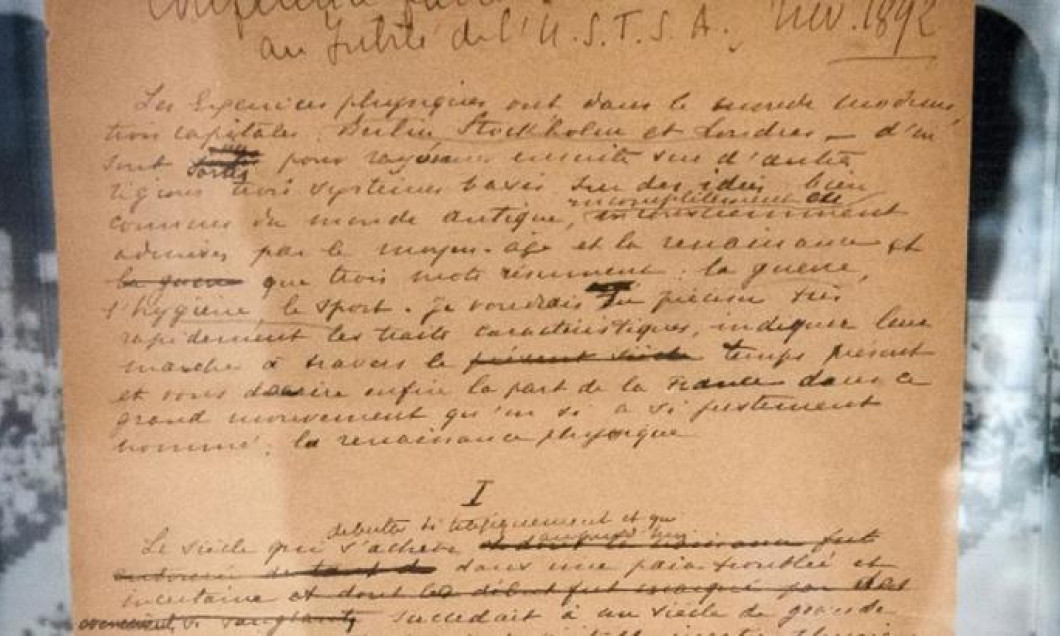 Conférence faite
au Jubilé de l'U.S.F.S.A., Nov. 1892
Les Exercices physiques ont dans le monde moderne
trois capitales Berlin Stockholm et Londres – d'où
sont pour rayonner ensuite sur d'autres
régions trois systèmes basés sur des idées bien
incomplètement et
connues du monde antique, inconsciemment
admises par le moyen-âge et la renaissance et
la guerre que trois mots résument : la guerre,
l'hygiène, le sport. Je voudrais préciser très
rapidement les traits caractéristiques, indiquer leur
marche à travers le présent siècle temps présent
et vous dire enfin la part de la France dans ce
grand mouvement qu'on a si justement
nommé : la renaissance physique
I
débuta si et que
Le siècle qui s'achève dont la naissance fut
dans une paix troublée et
incertaine et dont le début fut marqué par des
si sanglants, succédait à un siècle de grande